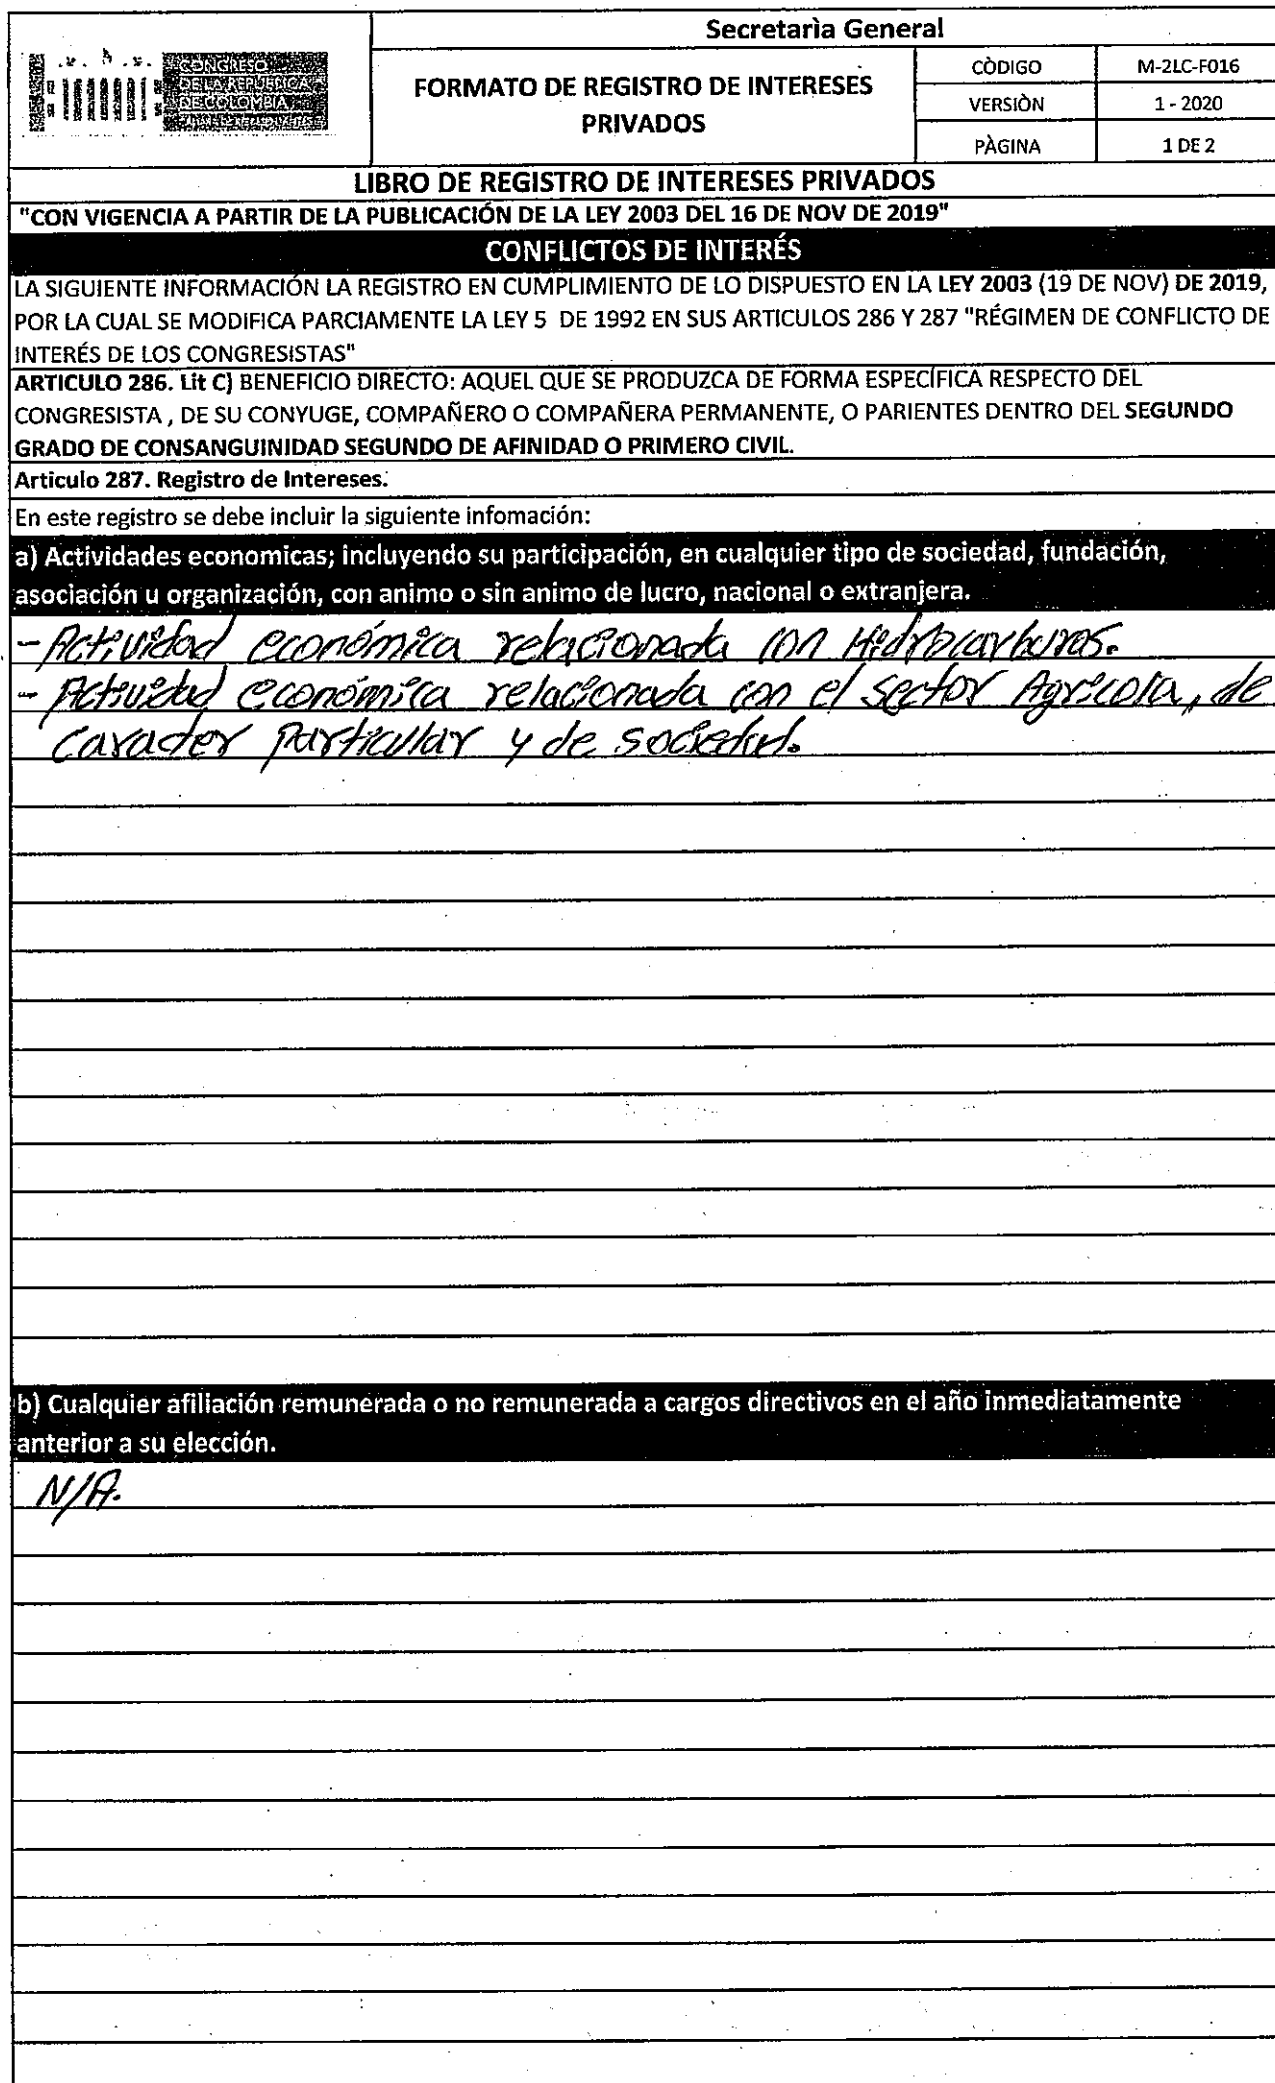 Secretarìa General
CONGRESO
DE LA REPÚBLICA
DE COLOMBIA
FORMATO DE REGISTRO DE INTERESES
PRIVADOS
CÒDIGO M-2LC-F016
VERSIÒN 1 - 2020
PÀGINA 1 DE 2
LIBRO DE REGISTRO DE INTERESES PRIVADOS
"CON VIGENCIA A PARTIR DE LA PUBLICACIÓN DE LA LEY 2003 DEL 16 DE NOV DE 2019"
CONFLICTOS DE INTERÉS
LA SIGUIENTE INFORMACIÓN LA REGISTRO EN CUMPLIMIENTO DE LO DISPUESTO EN LA LEY 2003 (19 DE NOV) DE 2019,
POR LA CUAL SE MODIFICA PARCIAMENTE LA LEY 5 DE 1992 EN SUS ARTICULOS 286 Y 287 "RÉGIMEN DE CONFLICTO DE
INTERÉS DE LOS CONGRESISTAS"
ARTICULO 286. Lit C) BENEFICIO DIRECTO: AQUEL QUE SE PRODUZCA DE FORMA ESPECÍFICA RESPECTO DEL
CONGRESISTA , DE SU CONYUGE, COMPAÑERO O COMPAÑERA PERMANENTE, O PARIENTES DENTRO DEL SEGUNDO
GRADO DE CONSANGUINIDAD SEGUNDO DE AFINIDAD O PRIMERO CIVIL.
Articulo 287. Registro de Intereses.
En este registro se debe incluir la siguiente infomación:
a) Actividades economicas; incluyendo su participación, en cualquier tipo de sociedad, fundación,
asociación u organización, con animo o sin animo de lucro, nacional o extranjera.
- Actividad económica relacionada con Hidrocarburos.
- Actividad económica relacionada con el sector Agrícola, de
Caracter Particular y de sociedad.
b) Cualquier afiliación remunerada o no remunerada a cargos directivos en el año inmediatamente
anterior a su elección.
N/A.